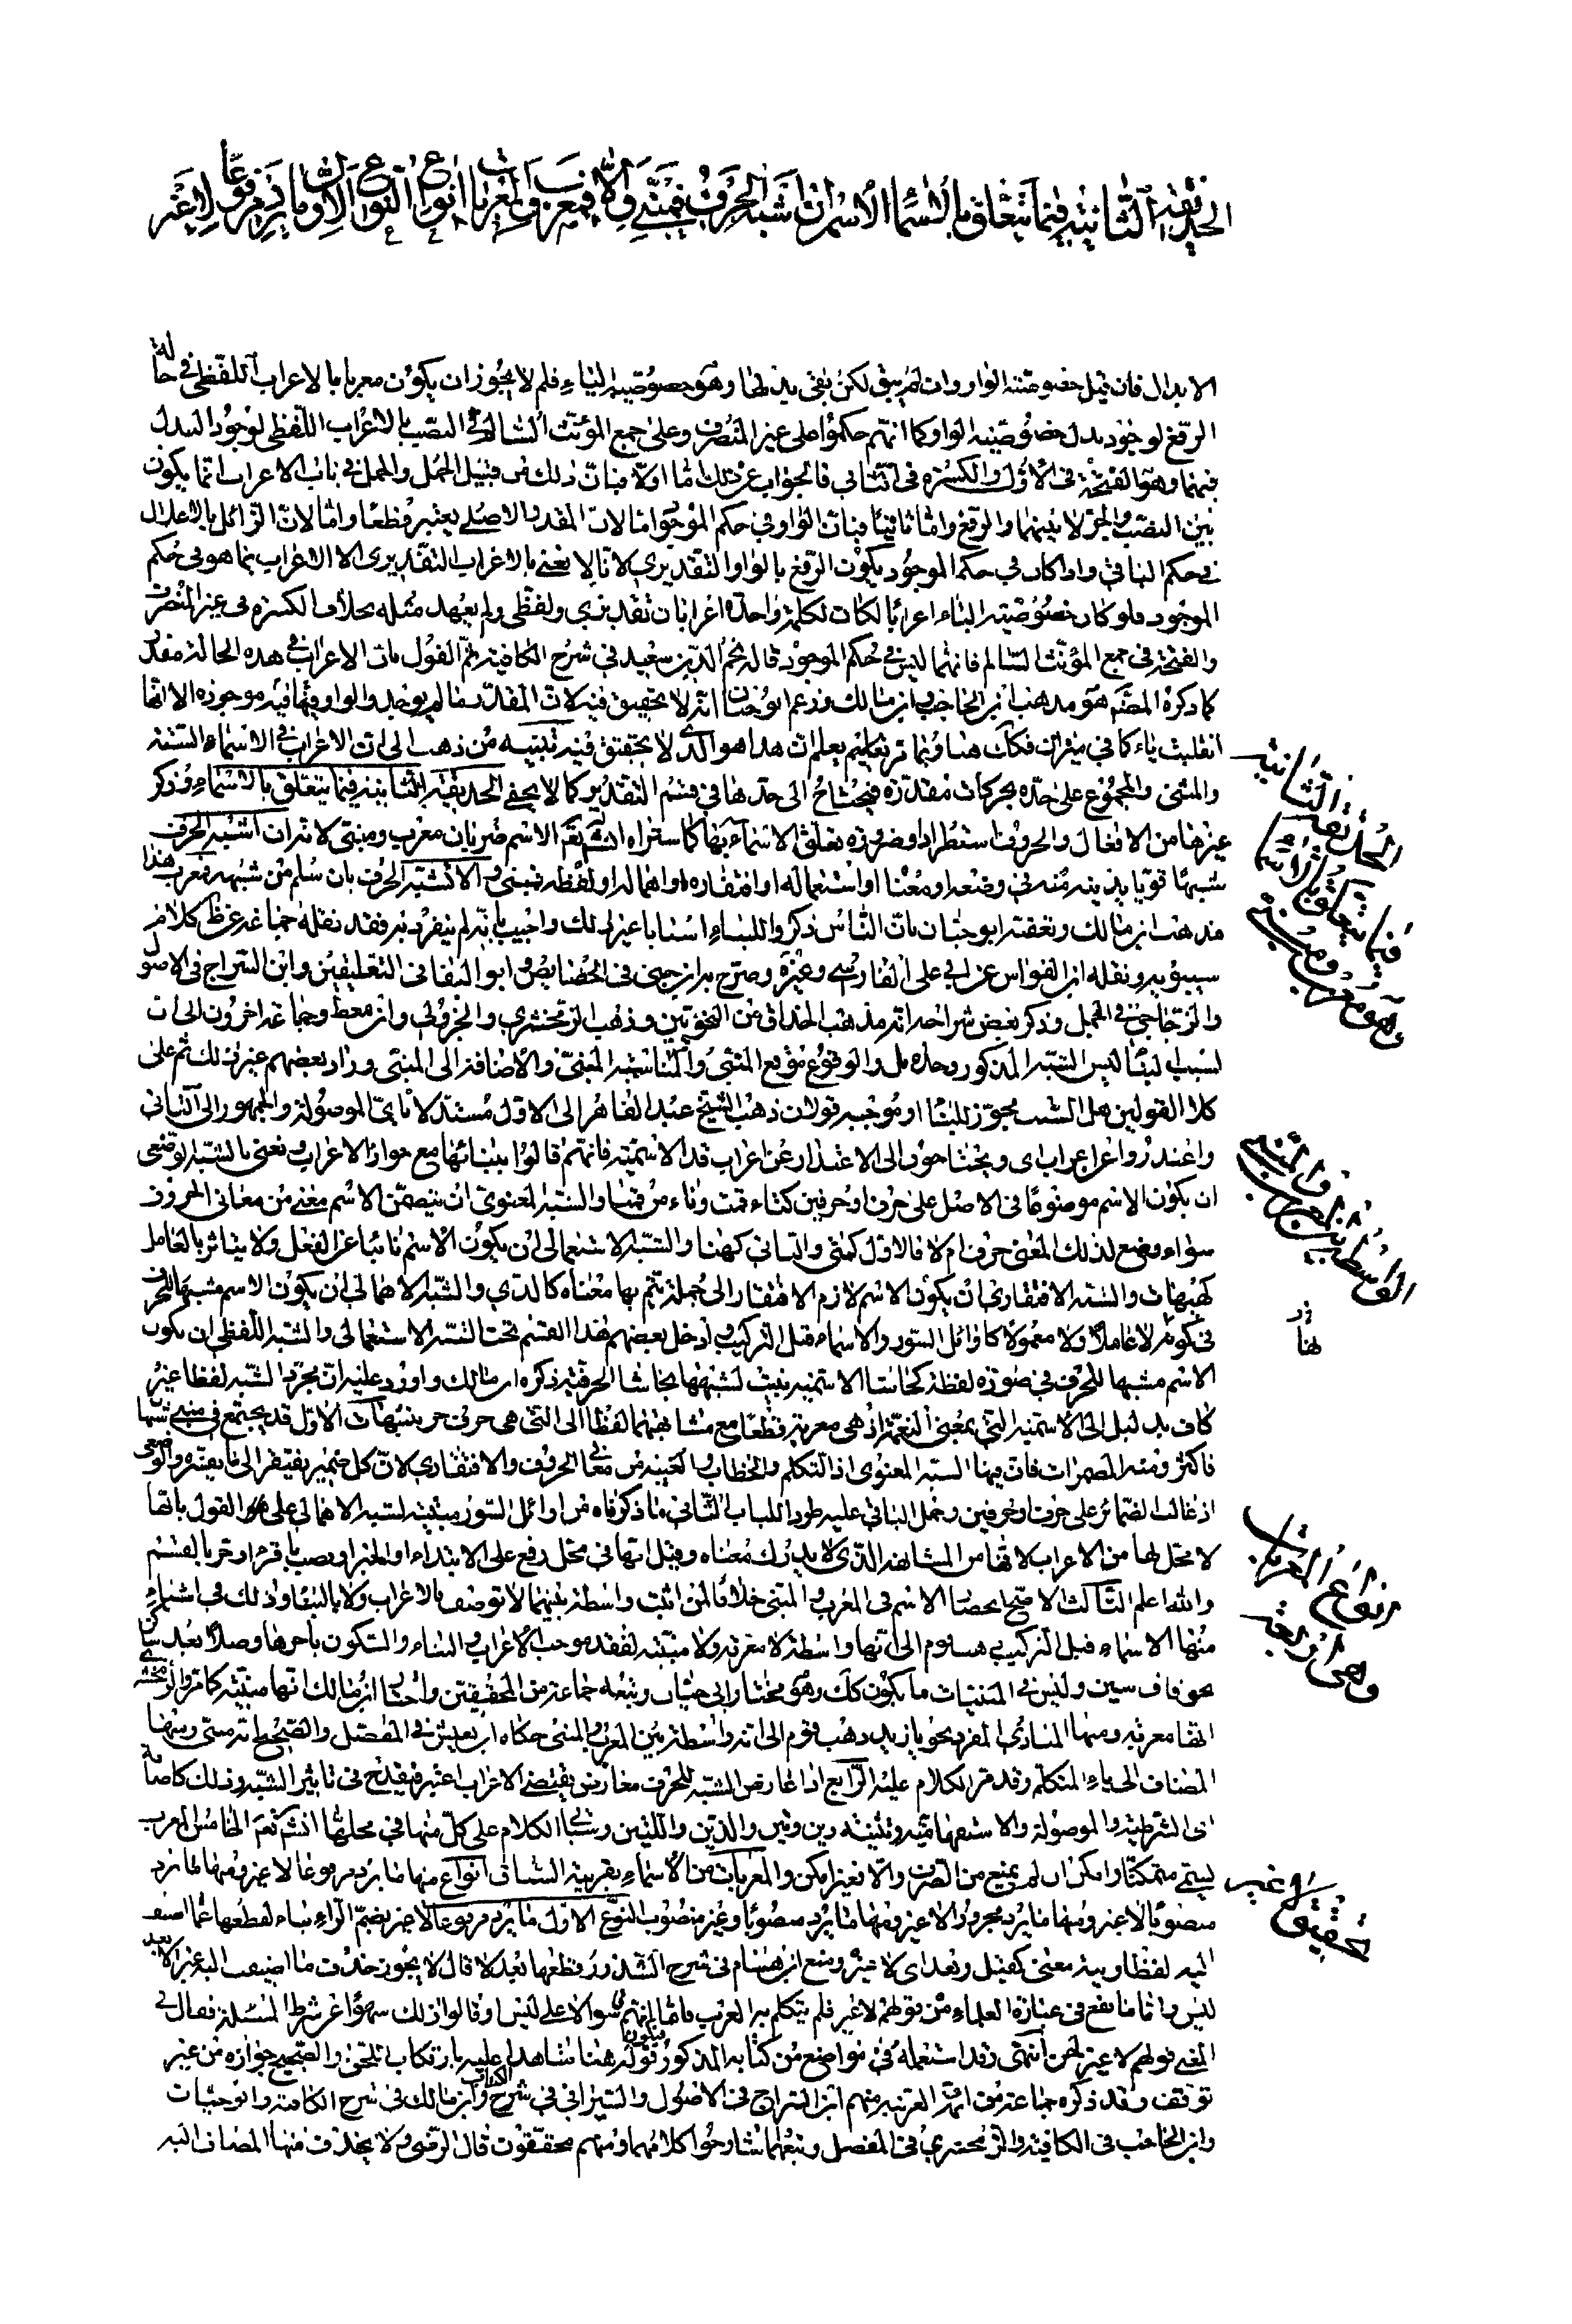 الحديقة الثانية فيما يتعلق بالاسماء الاسم ان اشبه الحرف فمبني والا فمعرب والمعربات انواع النوع الاول ما يرد مرفوعا لا غير
الابدال فان قيل خصوصية الواو وان لم يبق لكن بقي بدلها وهو خصوصية الياء فلم لا يجوز ان يكون معربا بالاعراب اللفظي في حالة
الرفع لوجود بدل خصوصية الواو كما انهم حكموا على غير المنصرف وعلى جمع المؤنث السالم في النصب بالاعراب اللفظي لوجود البدل
فيهما وهو الفتحة في الاول والكسرة في الثاني فالجواب عن ذلك اما اولا فبان ذلك من قبيل الحمل والحمل في باب الاعراب انما يكون
بين النصب والجر لا بينهما والرفع واما ثانيا فبان الواو في حكم الموجود لان المقدر الاصلي يعتبر قطعا واما لان الزائل بالاعلال
في حكم الباقي واذا كان في حكم الموجود يكون الرفع بالواو التقديري لانا لا نعني بالاعراب التقديري الا الاعراب بما هو في حكم
الموجود فلو كان خصوصية الياء اعرابا لكان لكلمة واحدة اعرابان تقديري ولفظي ولم يعهد مثله بخلاف الكسرة في غير المنصرف
والفتحة في جمع المؤنث السالم فانهما ليس في حكم الموجود قاله نجم الدين سعيد في شرح الكافية ثم القول بان الاعراب في هذه الحالة مقدر
كما ذكره المصنف هو مذهب ابن الحاجب وابن مالك وزعم ابو حيان انه لا تحقيق فيه لان المقدر ما لم يوجد والواو فيها فيه موجودة الا انها
انقلبت ياء كما في ميزان فكان هنا وفيما تم تعليم يعلم ان هذا هو الذي لا تحقيق فيه تنبيه من ذهب الى ان الاعراب في الاسماء الستة
والمثنى والمجموع على حده بحركات مقدرة فيحتاج الى عدها في قسم التقدير كما لا يخفى الحديقة الثانية فيما يتعلق بالاسماء وذكر
غيرها من الافعال والحروف استطرادا وضرورة تعلق الاسماء بها كما ستراه ان شاء الله تعالى الاسم ضربان معرب ومبني لانه ان اشبه الحرف
شبها قويا يدنيه منه في وضعه او معناه او استعماله او افتقاره او اهماله او لفظه فمبني والا يشبه الحرف بان سلم من شبهه فمعرب هذا
مذهب ابن مالك وتعقبه ابو حيان بان الناس ذكروا للبناء اسبابا غير ذلك واجيب بانه لم ينفرد به فقد نقله جماعة عن ظاهر كلام
سيبويه ونقله ابن القواس عن ابي علي الفارسي وغيره وصرح به ابن جني في الخصائص وابو البقا في التعليقين وابن السراج في الاصول
والزجاجي في الجمل وذكر بعض شراحه انه مذهب الحذاق من النحويين وذهب الزمخشري والجزولي وابن معط وجماعة اخرون الى ان
لسبب البناء ليس الشبه المذكور وحده بل والوقوع موقع المبني والمناسبة المبني والاضافة الى المبني وزاد بعضهم غير ذلك ثم على
كلا القولين هل الشبه مجوز للبناء او موجبه قولان ذهب الشيخ عبد القاهر الى الاول مستدلا باي الموصولة والجمهور الى الثاني
واعتذروا عن اعراب اي ويحتاجون الى الاعتذار عن اعراب قد الاسمية فانهم قالوا ببنائها مع جواز الاعراب ونعني بالشبه الوضعي
ان يكون الاسم موضوعا في الاصل على حرف او حرفين كتاء قمت وناء من قمنا والشبه المعنوي ان يتضمن الاسم معنى من معاني الحروف
سواء وضع لذلك المعنى حرف ام لا فالاول كمتى والثاني كهنا والشبه الاستعمالي ان يكون الاسم نائبا عن الفعل ولا يتاثر بالعامل
كهيهات والشبه الافتقاري ان يكون الاسم لازم الافتقار الى جملة يتم بها معناه كالذي والشبه الاهمالي ان يكون الاسم مشبها للحرف
في كونه لا عاملا ولا معمولا كاوائل السور والاسماء قبل التركيب وادخل بعضهم هذا القسم تحت الشبه الاستعمالي والشبه اللفظي ان يكون
الاسم مشبها للحرف في صورة لفظه كحاشا الاسمية بنيت لشبهها بحاشا الحرفية ذكره ابن مالك واورد عليه ان مجرد الشبه لفظا غير
كاف بدليل الى الاسمية التي بمعنى النعمة اذ هي معربة قطعا مع مشابهتها لفظا الى التي هي حرف جر تنبيهات الاول قد يجتمع في مبني شبهان
فاكثر ومنه المضمرات فان فيها الشبه المعنوي اذ التكلم والخطاب والغيبة من معاني الحروف والافتقاري لان كل ضمير يفتقر الى ما يفسره والوضعي
اذ غالب الضمائر على حرف او حرفين وحمل الباقي عليه طردا للباب الثاني ما ذكرناه من اوائل السور مبنية لشبه الاهمالي على القول بانها
لا محل لها من الاعراب لانها من المتشابه الذي لا يدرك معناه وقيل انها في محل رفع على الابتداء او الخبر او نصب باقرء او جر بالقسم
والله اعلم الثالث الاصح انحصار الاسم في المعرب والمبني خلافا لمن اثبت واسطة بينهما لا توصف بالاعراب ولا بالبناء وذلك في اشياء
منها الاسماء قبل التركيب فذهب قوم الى انها واسطة لا معربة ولا مبنية لفقد موجب الاعراب والبناء والسكون باخرها وصلا بعد ساكن
نحو قاف سين وليس في المبنيات ما يكون كك وهو مختار ابي حيان وتبعه جماعة من المحققين واختار ابن مالك انها مبنية كما مر والزمخشري
انها معربة ومنها المنادى المفرد نحو يا زيد ذهب قوم الى انه واسطة بين المعرب والمبني حكاه ابن يعيش في المفصل والصحيح انه مبني ومنها
المضاف الى ياء المتكلم وقد مر الكلام عليه الرابع اذا عارض الشبه للحرف معارض يقتضي الاعراب اعتبر فيقدح في تاثير الشبه وذلك كاضافة
اي الشرطية والموصولة والاستفهامية وتثنية ذين وتين والذين واللتين وسياتي الكلام على كل منها في محله ان شاء الله تعالى الخامس المعرب
يسمى متمكنا وامكن ان لم يمنع من الصرف والا فغير امكن والمعربات من الاسماء بقرينة السياق انواع منها ما يرد مرفوعا لا غير ومنها ما يرد
منصوبا لا غير ومنها ما يرد مجرورا لا غير ومنها ما يرد منصوبا وغير منصوب النوع الاول ما يرد مرفوعا لا غير بضم الراء بناء لقطعها عما اضيف
اليه لفظا ونية معنى كقبل وبعد اي لا غيره ومنع ابن هشام في شرح الشذور قطعها بعد لا قال لا يجوز حذف ما اضيفت اليه غير الا بعد
ليس واما ما يقع في عبارة العلماء من قولهم لا غير فلم يتكلم به العرب فاما انهم قاسوا لا على ليس او قالوا ذلك سهوا عن شرط المسئلة وقال في
المغني قولهم لا غير لحن انتهى وقد استعمله في مواضع من كتابه المذكور فيكون قوله هنا شاهدا عليه بارتكاب اللحن والصحيح جوازه من غير
توقف وقد ذكره جماعة من ائمة العربية منهم ابن السراج في الاصول والسيرافي في شرح الكتاب وابن مالك في شرح الكافية وابو حيان
وابن الحاجب في الكافية والزمخشري في المفصل وتبعهما شارحوا كلامهما ومنهم محققون قال الرضي ولا يحذف منها المضاف اليه
الحديقة الثانية
فيما يتعلق بالاسماء
وهو معرب ومبني
الواسطة بين المعرب والمبني
انواع المعربات
وهي اربعة
تحقيق لا غير